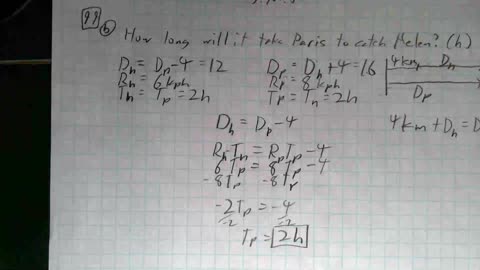 99
b) How long will it take Paris to catch Helen? (h)
Dₕ = Dₚ - 4 = 12
Rₕ = 6 kph
Tₕ = Tₚ = 2h
Dₚ = Dₕ + 4 = 16
Rₚ = 8 kph
Tₚ = Tₕ = 2h
4km Dₕ
Dₚ
Dₕ = Dₚ - 4
4km + Dₕ = D
RₕTₕ = RₚTₚ - 4
6Tₚ = 8Tₚ - 4
-8Tₚ -8Tₚ
-2Tₚ = -4
-2 -2
Tₚ = 2h